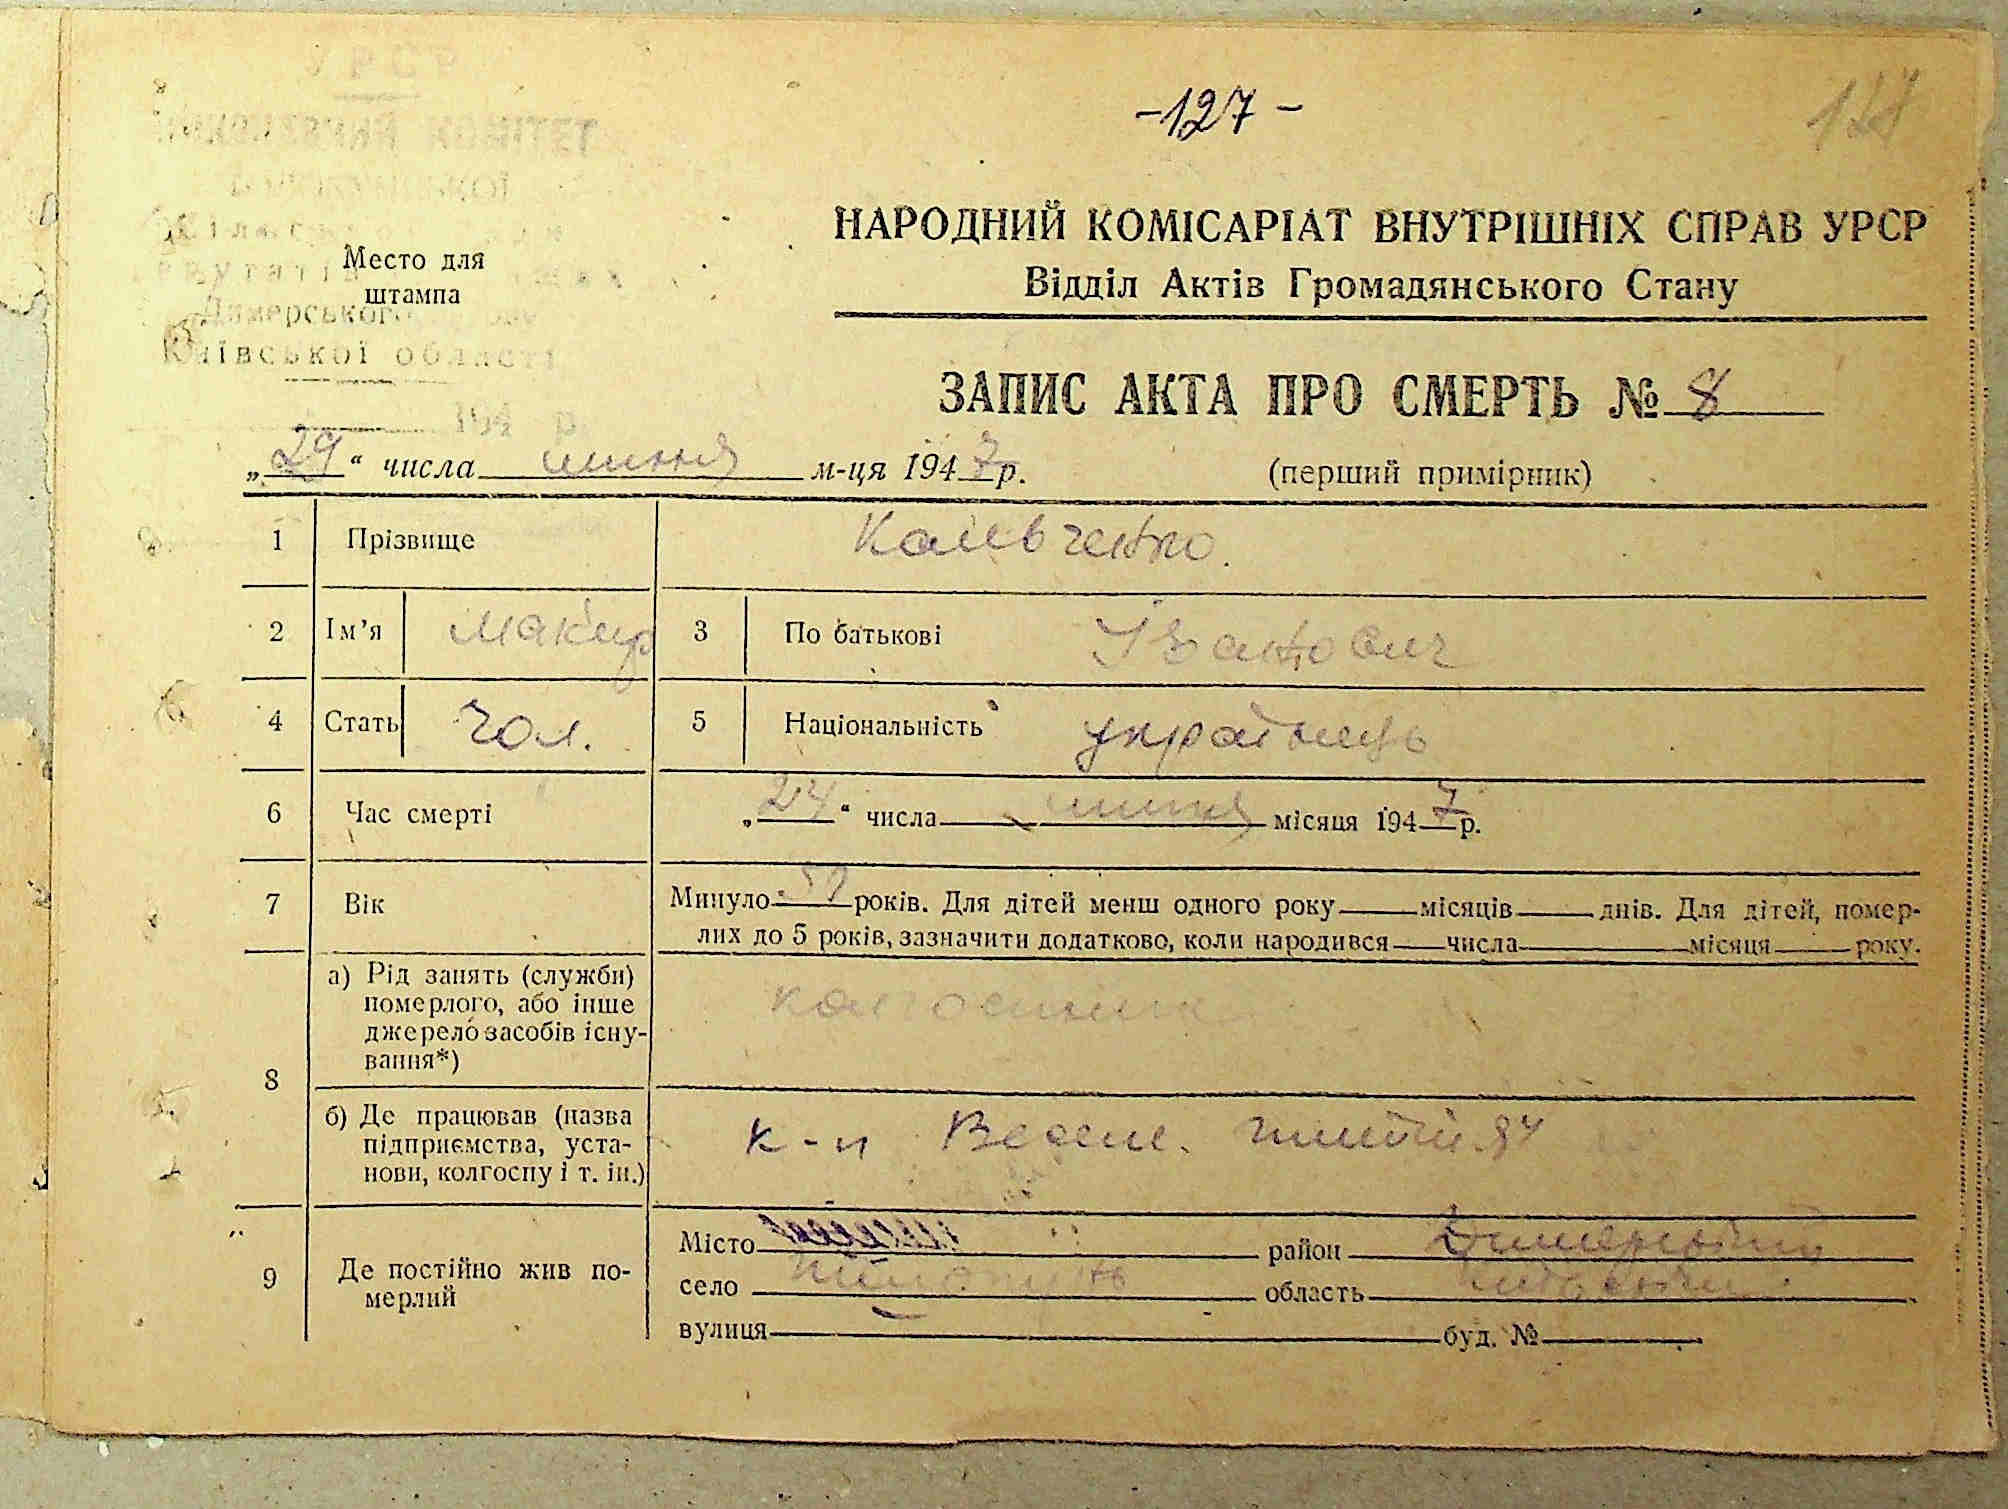 -127-
128
УРСР
Димерського
Київської області
194 р.
Место для
штампа
НАРОДНИЙ КОМІСАРІАТ ВНУТРІШНІХ СПРАВ УРСР
Відділ Актів Громадянського Стану
ЗАПИС АКТА ПРО СМЕРТЬ № 8
„29“ числа липня м-ця 1947 р.
(перший примірник)
1 Прізвище Кальченко.
2 Ім'я Макар 3 По батькові Іванович
4 Стать чол. 5 Національність українець
6 Час смерті „24“ числа липня місяця 1947 р.
7 Вік Минуло років. Для дітей менш одного року місяців днів. Для дітей, помер-
лих до 5 років, зазначити додатково, коли народився числа місяця року.
8 а) Рід занять (служби)
померлого, або інше
джерело засобів існу-
вання*)
колгоспник
б) Де працював (назва
підприємства, уста-
нови, колгоспу і т. ін.)
к-п Веселе життя
9 Де постійно жив по-
мерлий
Місто район Димерський
село область Київської
вулиця буд. №